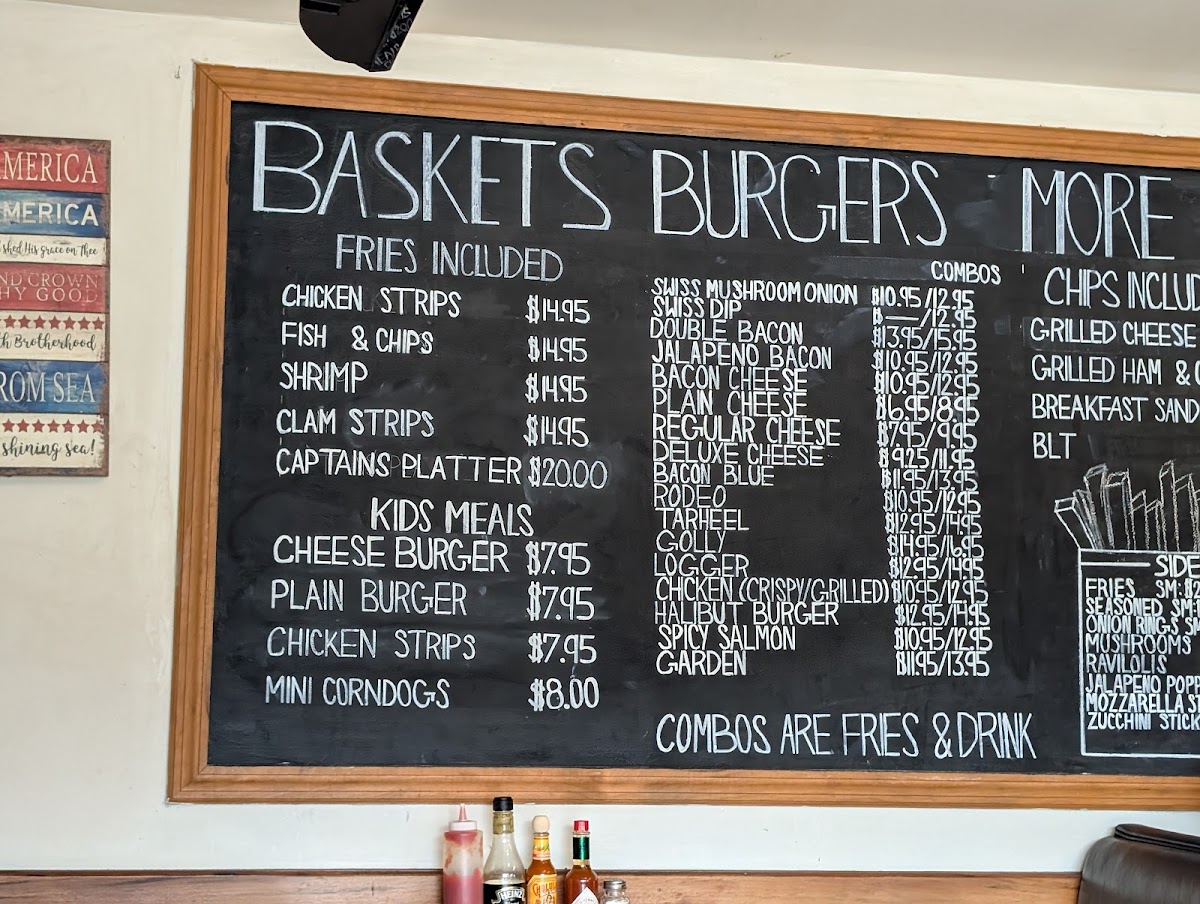 MERICA
MERICA
shed His grace on Thee
ND CROWN
HY GOOD
th Brotherhood
ROM SEA
shining sea!
BASKETS
FRIES INCLUDED
CHICKEN STRIPS $14.95
FISH & CHIPS $14.95
SHRIMP $14.95
CLAM STRIPS $14.95
CAPTAINS PLATTER $20.00
KIDS MEALS
CHEESE BURGER $7.95
PLAIN BURGER $7.95
CHICKEN STRIPS $7.95
MINI CORNDOGS $8.00
BURGERS
COMBOS
SWISS MUSHROOM ONION $10.95/12.95
SWISS DIP $ —/12.95
DOUBLE BACON $13.95/15.95
JALAPENO BACON $10.95/12.95
BACON CHEESE $10.95/12.95
PLAIN CHEESE $6.95/8.95
REGULAR CHEESE $7.95/9.95
DELUXE CHEESE $9.25/11.95
BACON BLUE $11.95/13.95
RODEO $10.95/12.95
TARHEEL $12.95/14.95
GOLLY $14.95/16.95
LOGGER $12.95/14.95
CHICKEN (CRISPY/GRILLED) $10.95/12.95
HALIBUT BURGER $12.95/14.95
SPICY SALMON $10.95/12.95
GARDEN $11.95/13.95
COMBOS ARE FRIES & DRINK
MORE
CHIPS INCLU
GRILLED CHEESE
GRILLED HAM &
BREAKFAST SAND
BLT
SIDE
FRIES SM:$2
SEASONED SM
ONION RINGS SM
MUSHROOMS
RAVILOLIS
JALAPENO POPP
MOZZARELLA ST
ZUCCHINI STICK
HEINZ